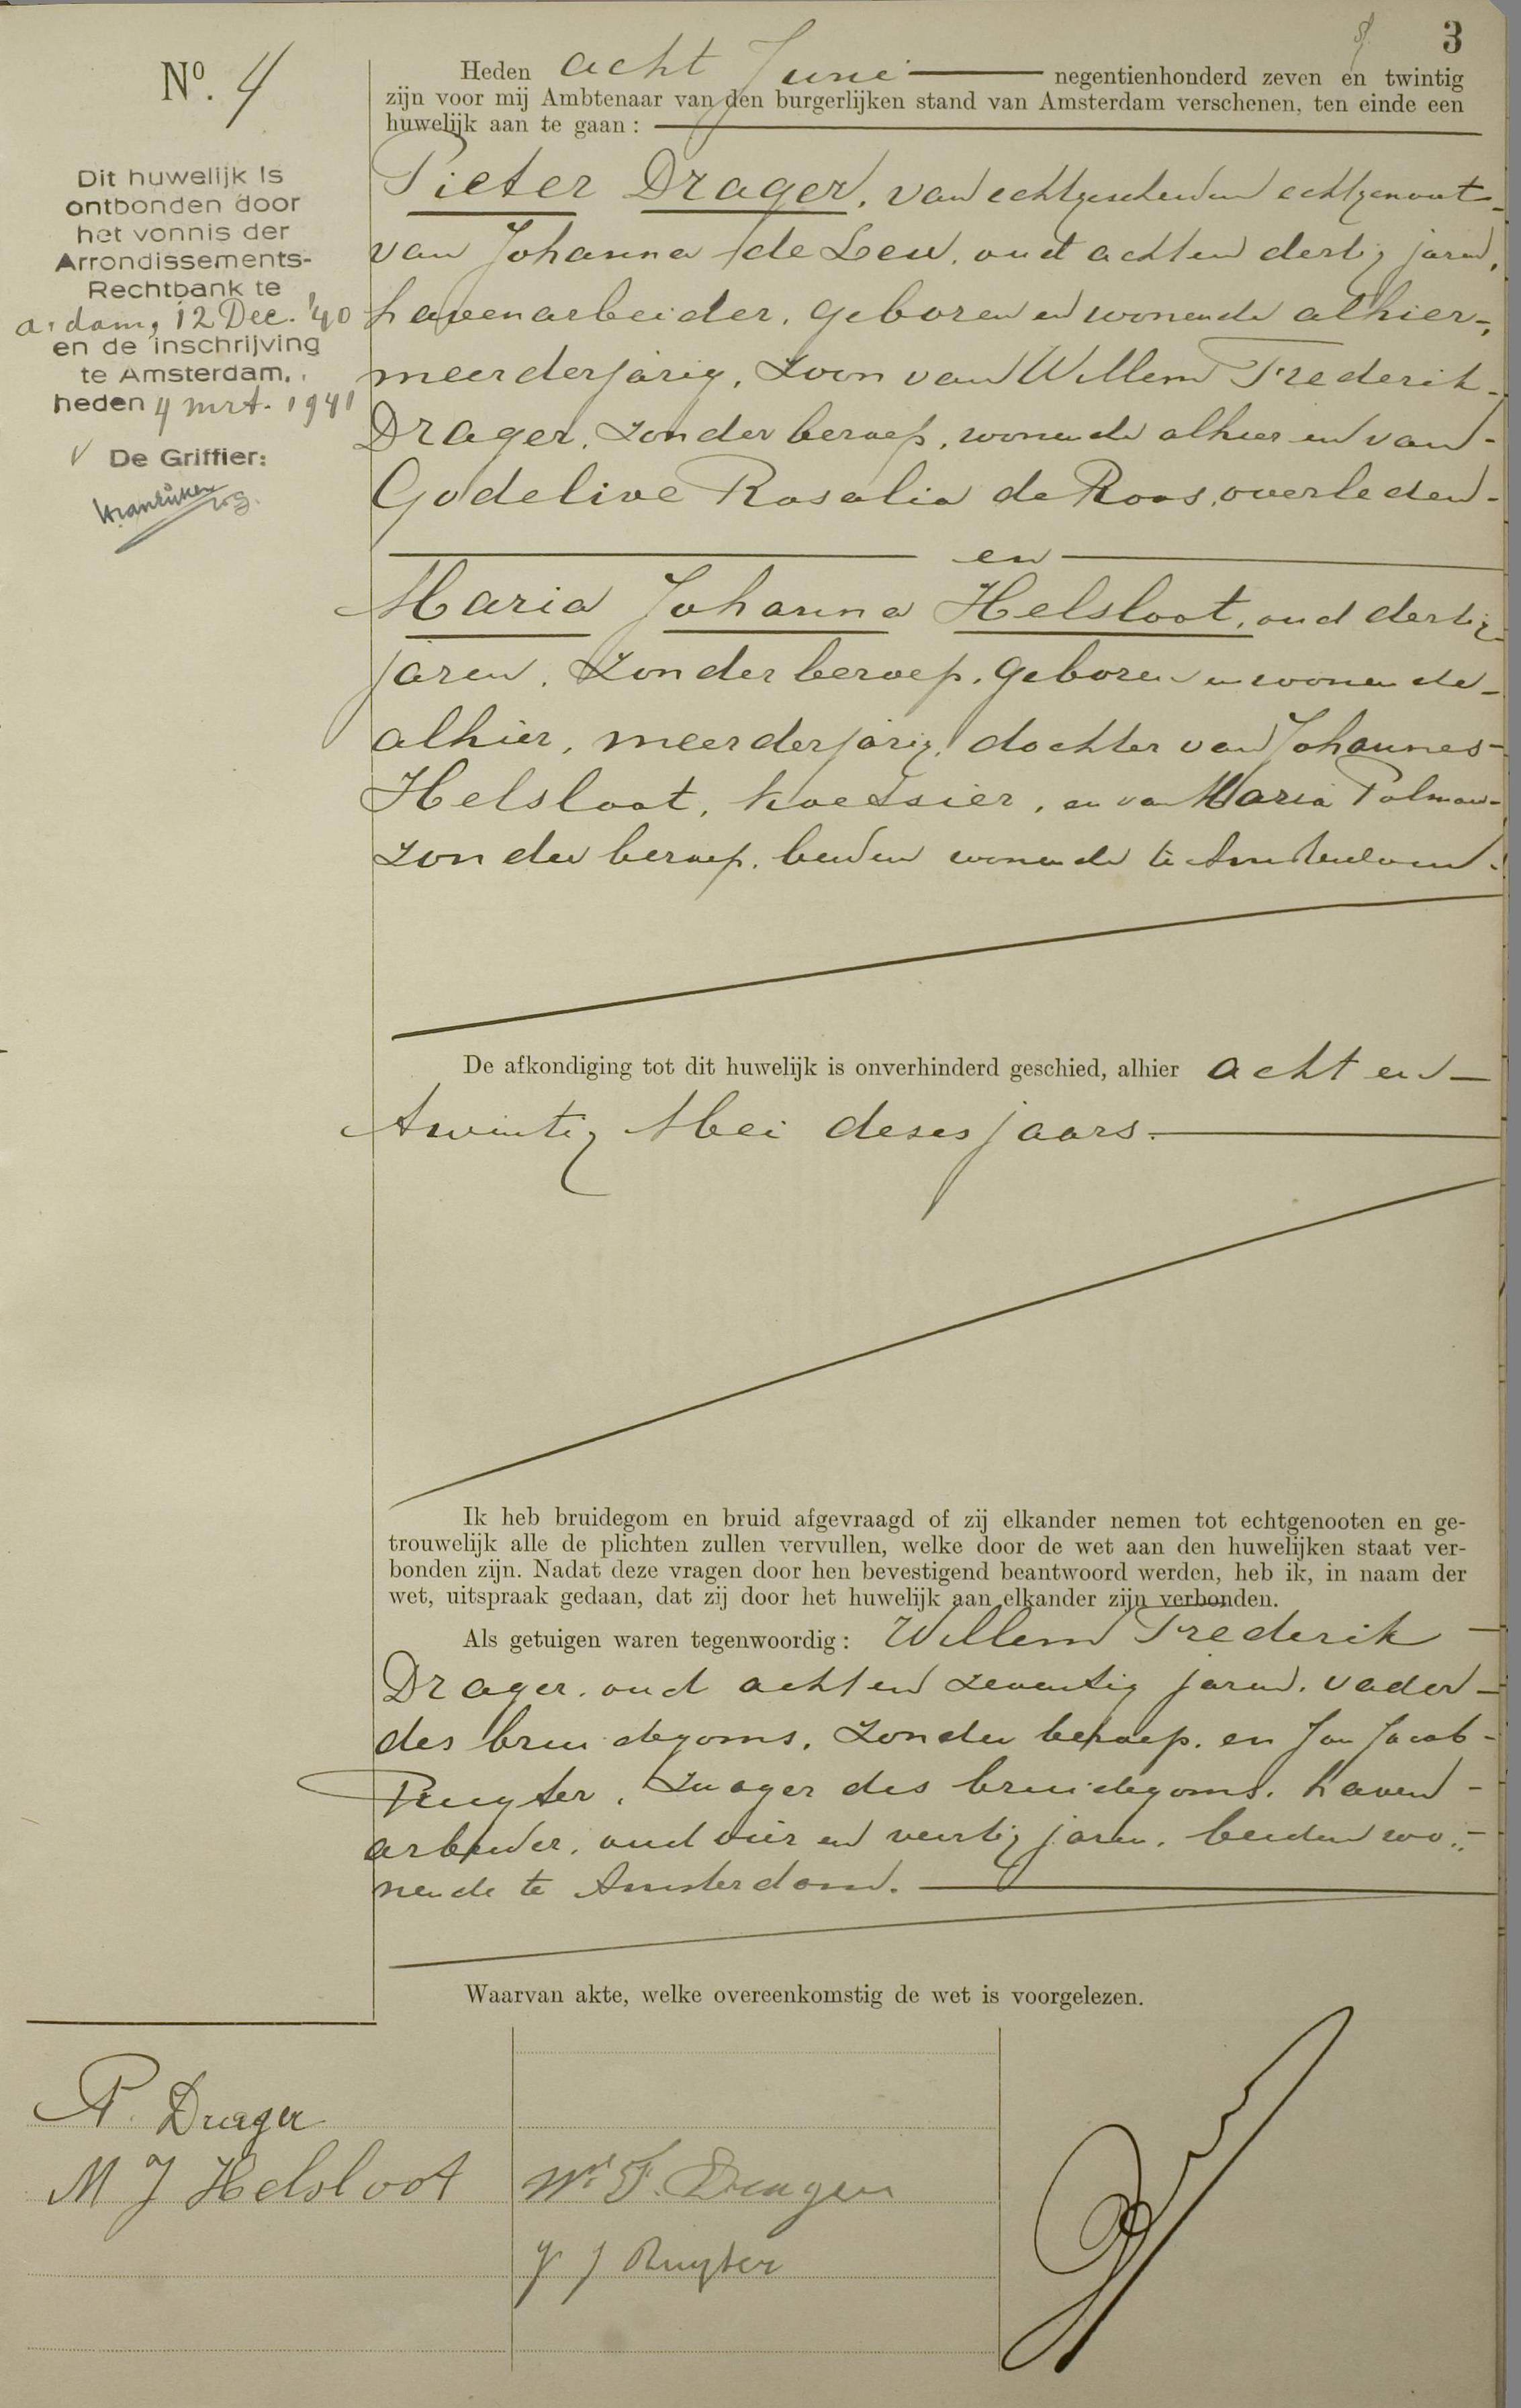 3
Nº. 4
Dit huwelijk is
ontbonden door
het vonnis der
Arrondissements-
Rechtbank te
a.dam, 12 Dec. '40
en de inschrijving
te Amsterdam,
heden 4 mrt. 1941
V De Griffier:
Heden acht Juni negentienhonderd zeven en twintig
zijn voor mij Ambtenaar van den burgerlijken stand van Amsterdam verschenen, ten einde een
huwelijk aan te gaan:
Pieter Drager, van echtgescheiden echtgenoot
van Johanna de Leeu, oud acht en dertig jaren,
havenarbeider, geboren en wonende alhier,
meerderjarig, zoon van Willem Frederik
Drager, zonder beroep, wonende alhier en van
Godelive Rosalia de Roos, overleden
en
Maria Johanna Helsloot, oud dertig
jaren, zonder beroep, geboren en wonende
alhier, meerderjarig, dochter van Johannes
Helsloot, koetsier, en van Maria Polman
zonder beroep, beiden wonende te Amsterdam.
De afkondiging tot dit huwelijk is onverhinderd geschied, alhier acht en
twintig Mei dezes jaars.
Ik heb bruidegom en bruid afgevraagd of zij elkander nemen tot echtgenooten en ge-
trouwelijk alle de plichten zullen vervullen, welke door de wet aan den huwelijken staat ver-
bonden zijn. Nadat deze vragen door hen bevestigend beantwoord werden, heb ik, in naam der
wet, uitspraak gedaan, dat zij door het huwelijk aan elkander zijn verbonden.
Als getuigen waren tegenwoordig: Willem Frederik
Drager, oud acht en zeventig jaren, vader
des bruidegoms, zonder beroep, en Jan Jacob
Ruyter, zwager des bruidegoms, haven
arbeider, oud vier en veertig jaren, beiden wo-
nende te Amsterdam.
Waarvan akte, welke overeenkomstig de wet is voorgelezen.
P. Drager
M J Helsloot
Wm F. Drager
J J Ruyter